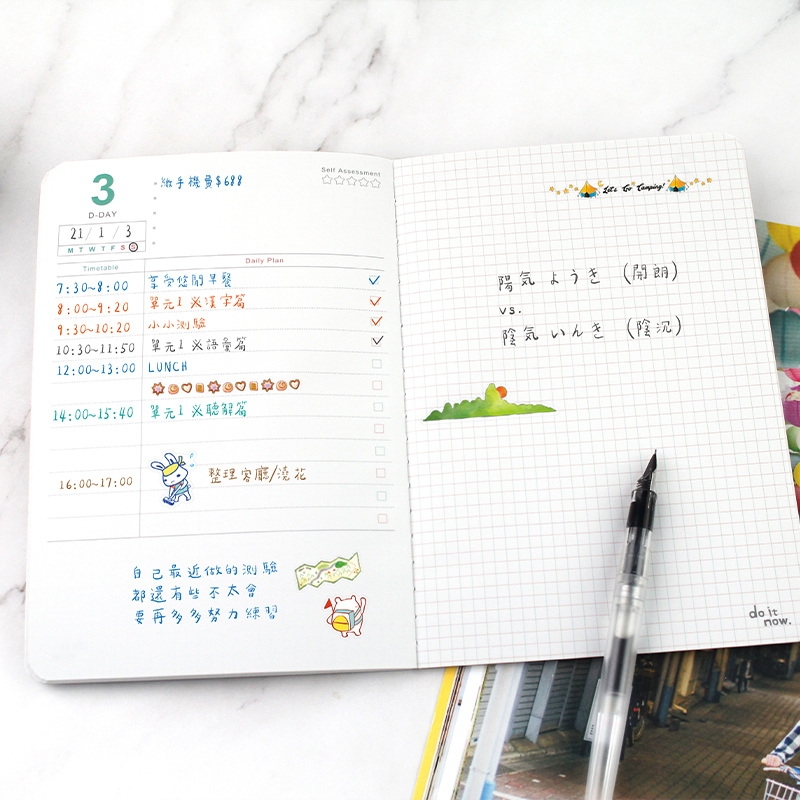 3
D-DAY
21/1/3
M T W T F S S
繳手機費$688
Self Assessment
Timetable
Daily Plan
7:30~8:00 享受悠閒早餐
8:00~9:20 單元1 必漢字篇
9:30~10:20 小小測驗
10:30~11:50 單元1 必語彙篇
12:00~13:00 LUNCH
14:00~15:40 單元1 必聽解篇
16:00~17:00 整理客廳/澆花
自己最近做的測驗
都還有些不太會
要再多多努力練習
Let's Go Camping!
陽気 ようき (開朗)
vs.
陰気 いんき (陰沉)
do it
now.